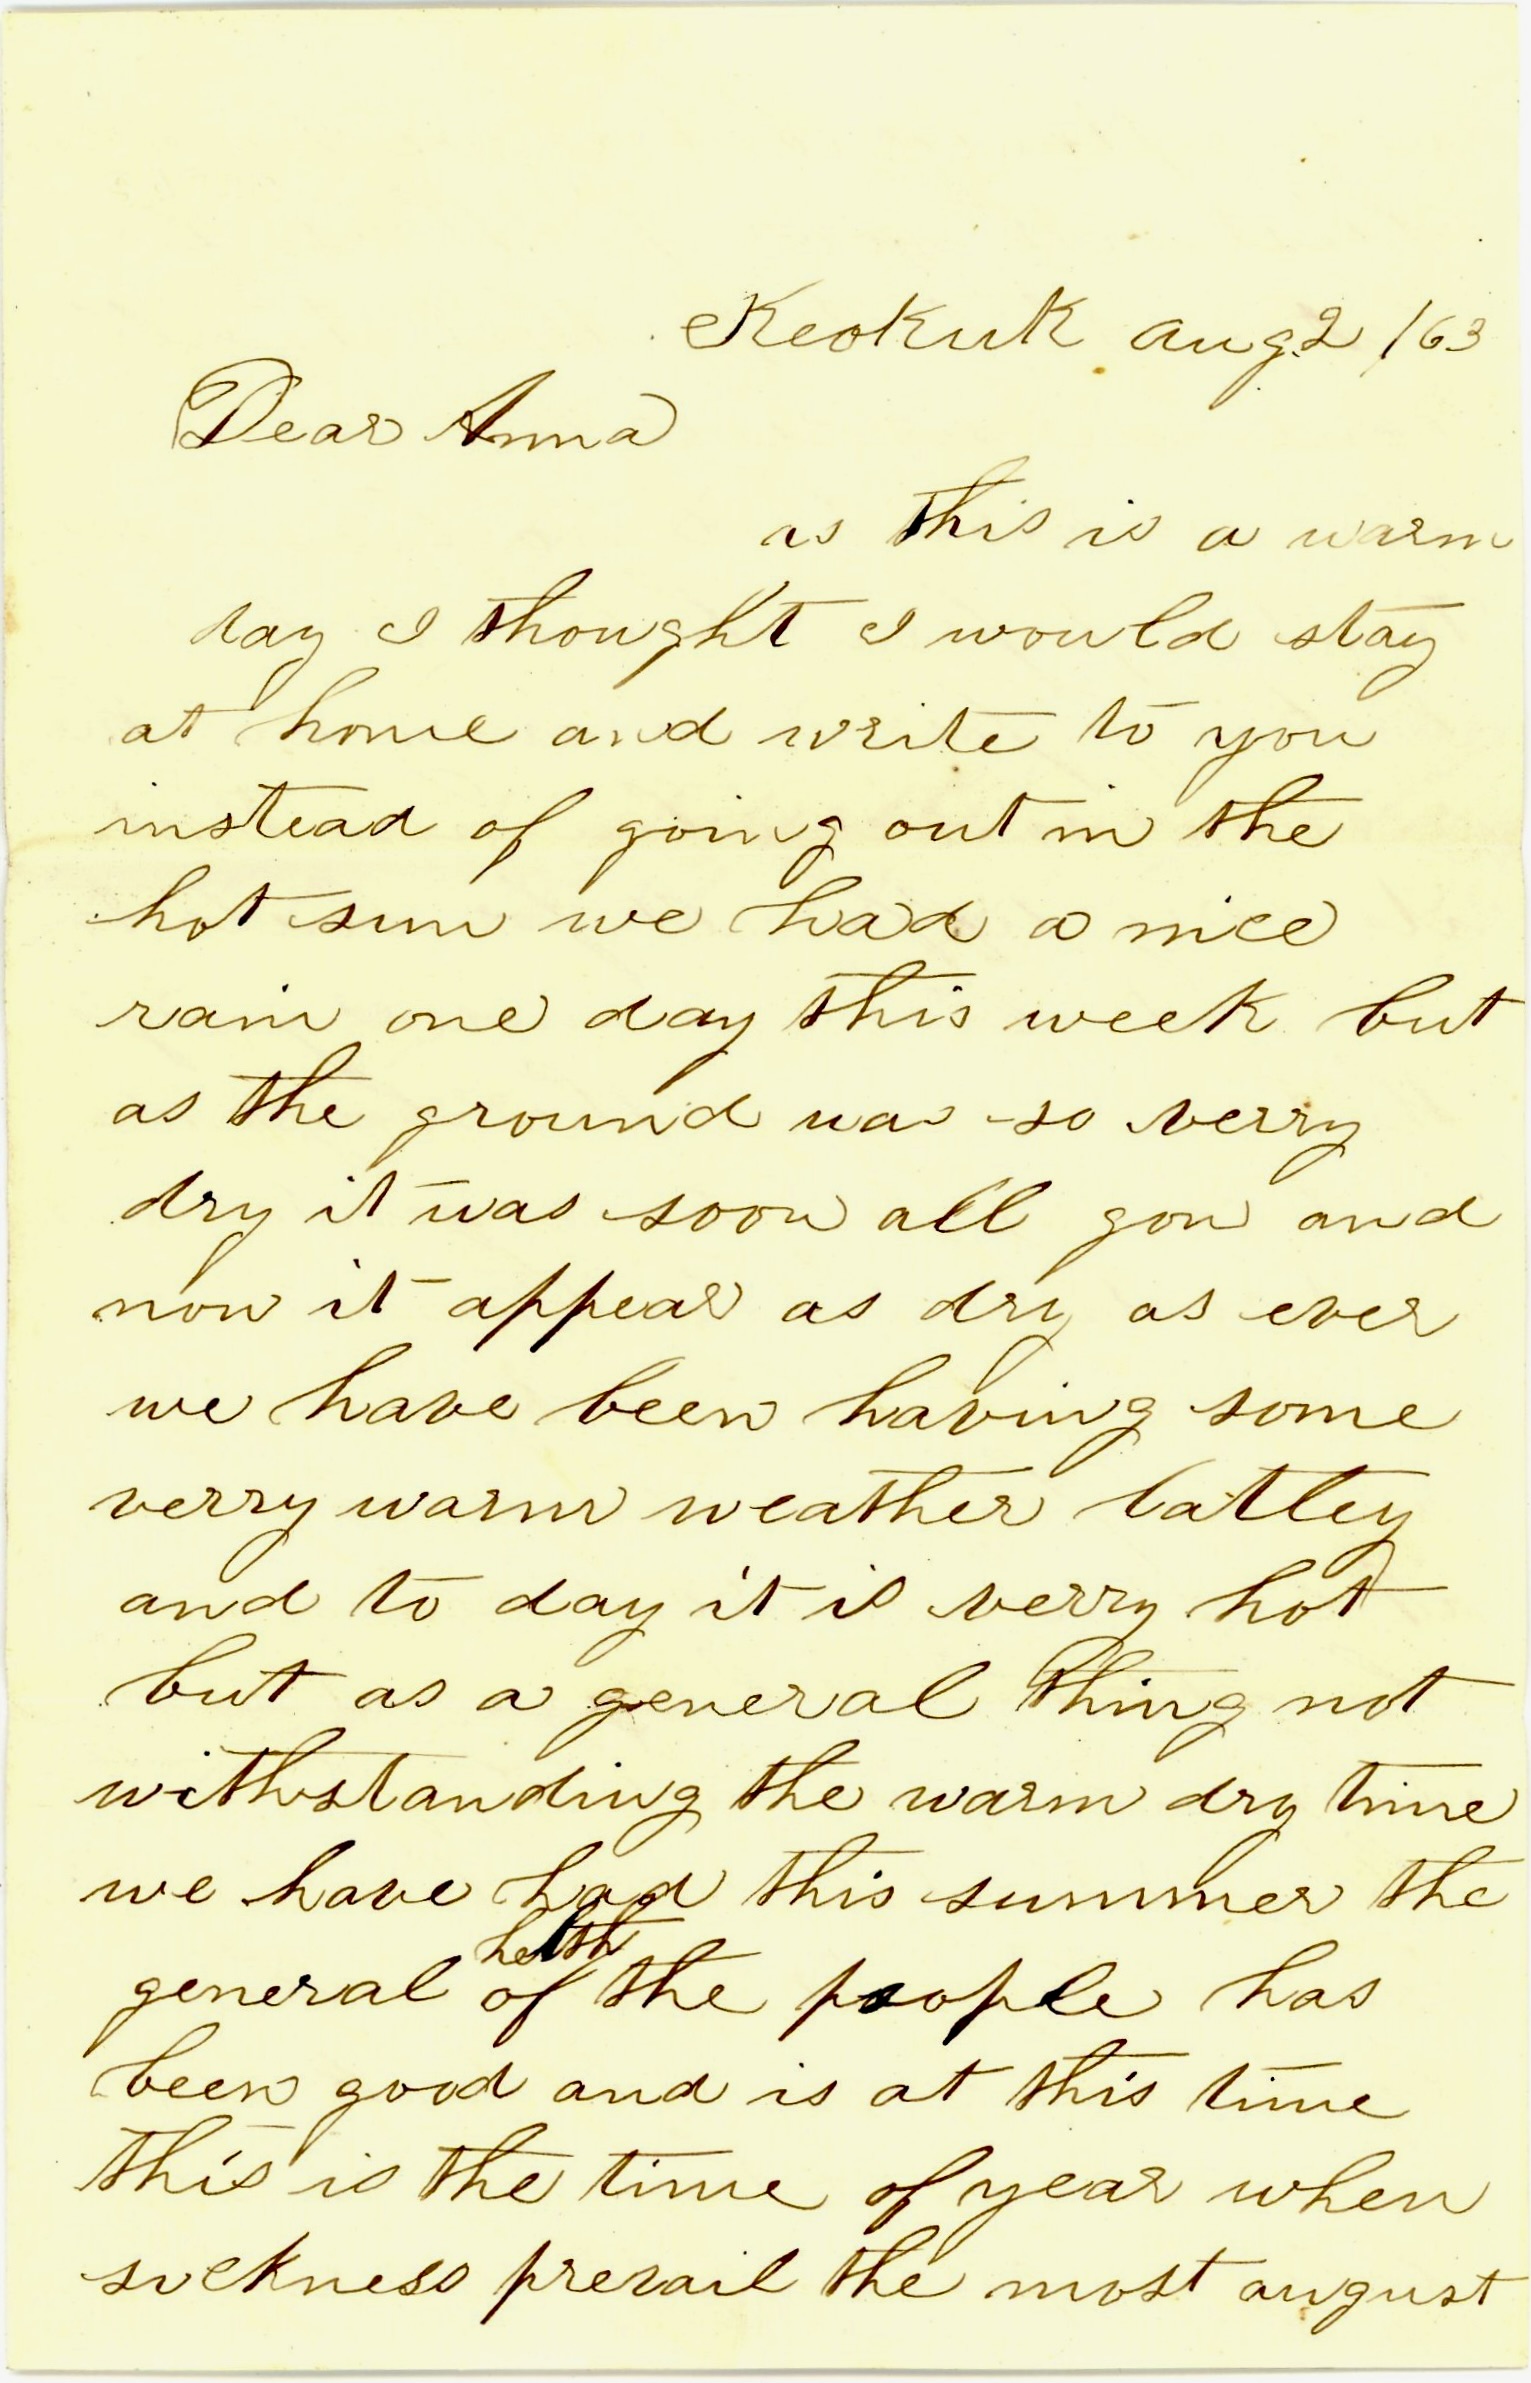 Keokuk aug 2 /63
Dear Anna
as this is a warm
day I thought I would stay
at home and write to you
instead of going out in the
hot sun we had a nice
rain one day this week but
as the ground was so verry
dry it was soon all gon and
now it appear as dry as ever
we have been having some
verry warm weather latley
and to day it is verry hot
but as a general thing not
withstanding the warm dry time
we have had this summer the
helth
general of the people has
been good and is at this time
this is the time of year when
sickness prevail the most august